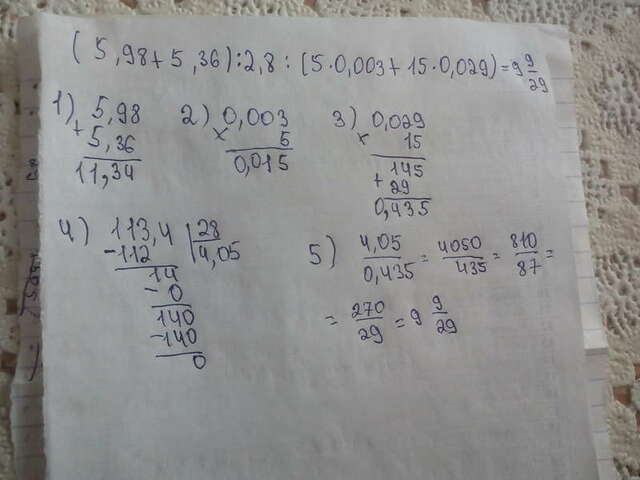 (5,98+5,36):2,8:(5·0,003+15·0,029)=9 9/29
1) 5,98
+ 5,36
11,34
2) 0,003
× 5
0,015
3) 0,029
× 15
145
+ 29
0,435
4) 113,4 | 28
-112 | 4,05
14
- 0
140
-140
0
5) 4,05/0,435 = 4050/435 = 810/87 =
= 270/29 = 9 9/29